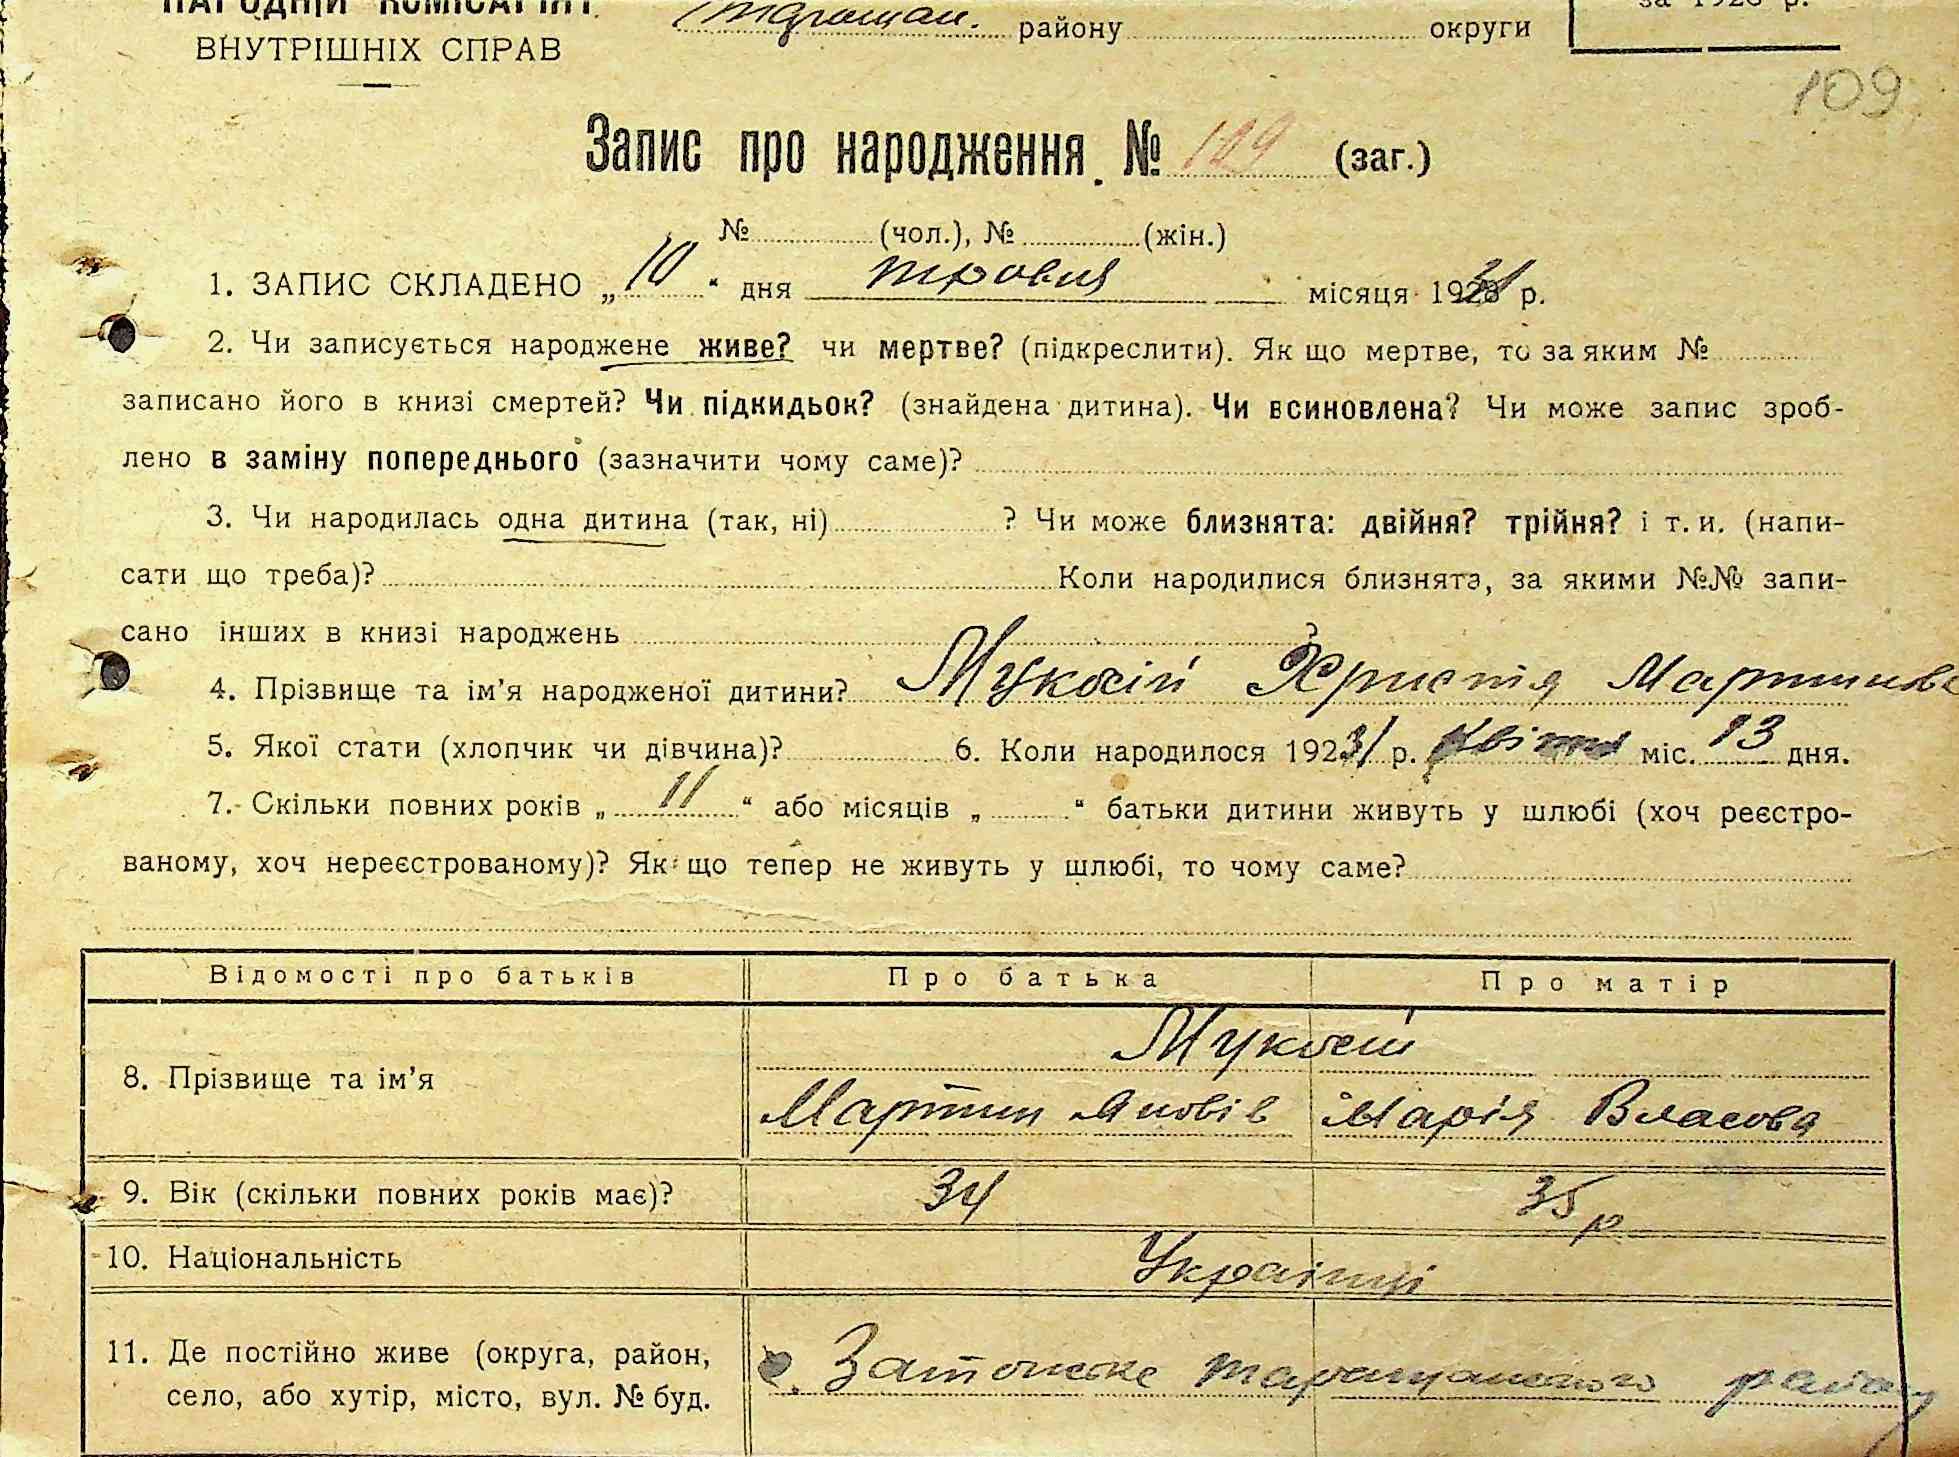 НАРОДНІЙ КОМІСАРІЯТ
за 1928 р.
Таращан. району округи
ВНУТРІШНІХ СПРАВ
109
Запис про народження № 109 (заг.)
№ (чол.), № (жін.)
1. ЗАПИС СКЛАДЕНО „10“ дня травня місяця 1931 р.
2. Чи записується народжене живе? чи мертве? (підкреслити). Як що мертве, то за яким №
записано його в книзі смертей? Чи підкидьок? (знайдена дитина). Чи всиновлена? Чи може запис зроб-
лено в заміну попереднього (зазначити чому саме)?
3. Чи народилась одна дитина (так, ні) ? Чи може близнята: двійня? трійня? і т. и. (напи-
сати що треба)? Коли народилися близнята, за якими №№ запи-
сано інших в книзі народжень ?
4. Прізвище та ім’я народженої дитини? Мукосій Христя Мартинова
5. Якої стати (хлопчик чи дівчина)? 6. Коли народилося 1931 р. квітня міс. 13 дня.
7. Скільки повних років „11“ або місяців „ “ батьки дитини живуть у шлюбі (хоч реєстро-
ваному, хоч нереєстрованому)? Як що тепер не живуть у шлюбі, то чому саме?
Відомості про батьків Про батька Про матір
Мукосії
8. Прізвище та ім’я
Мартин Яковів Марія Власова
9. Вік (скільки повних років має)? 34 35 р
10. Національність Українці
11. Де постійно живе (округа, район, с. Затонське таращанського району
село, або хутір, місто, вул. № буд.